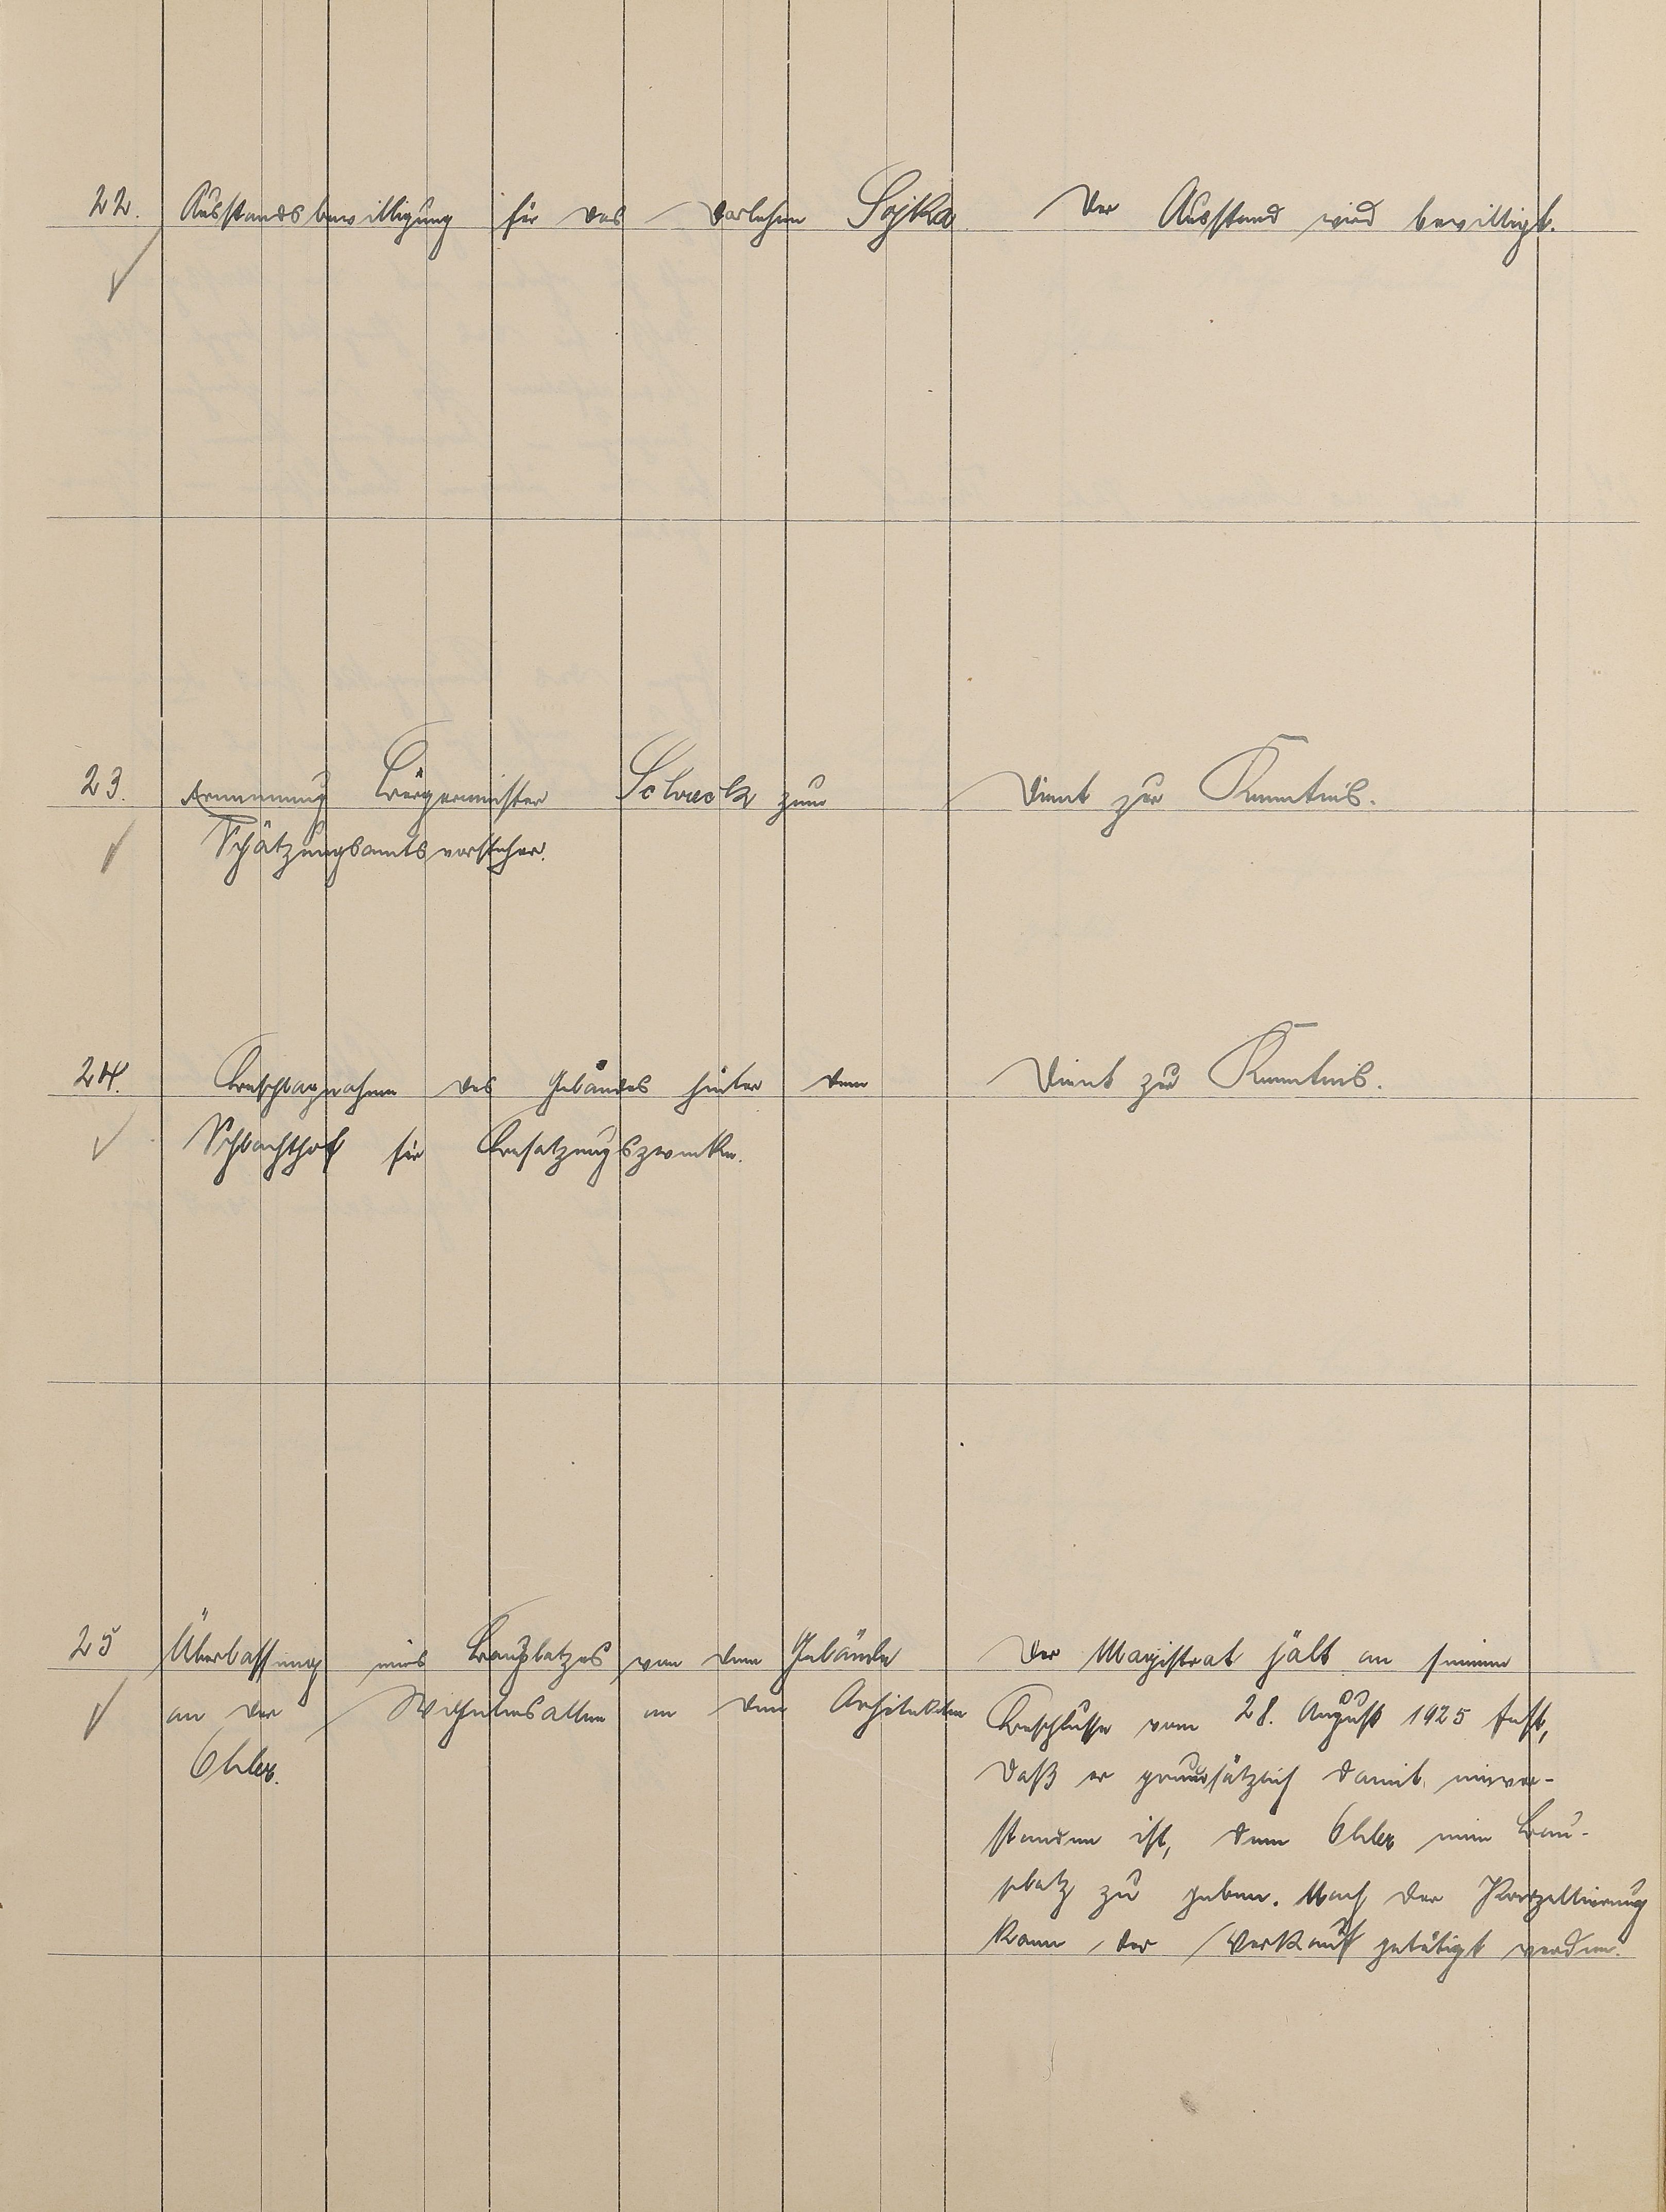 22. Ausstandsbewilligung für das Darlehen Sojka
Der Ausstand wird bewilligt.
23. Ernennung Bürgermeister zum
Schätzungsamtsvorsteher.
Dient zur Kenntnis.
24. Beschlagnahme des Geländes hinter dem
Schlachthof für Besatzungszwecke.
Dient zur Kenntnis.
25 Überlassung eines Bauplatzes von dem Gelände
an der Wilhelmsallee an den Architekten
Ohler.
Der Magistrat hält an seinem
Beschlusse vom 28. August 1925 fest,
daß er grundsätzlich damit einver-
standen ist, dem Ohler einen Bau-
platz zu geben. Nach der Parzellierung
kann der Verkauf getätigt werden.